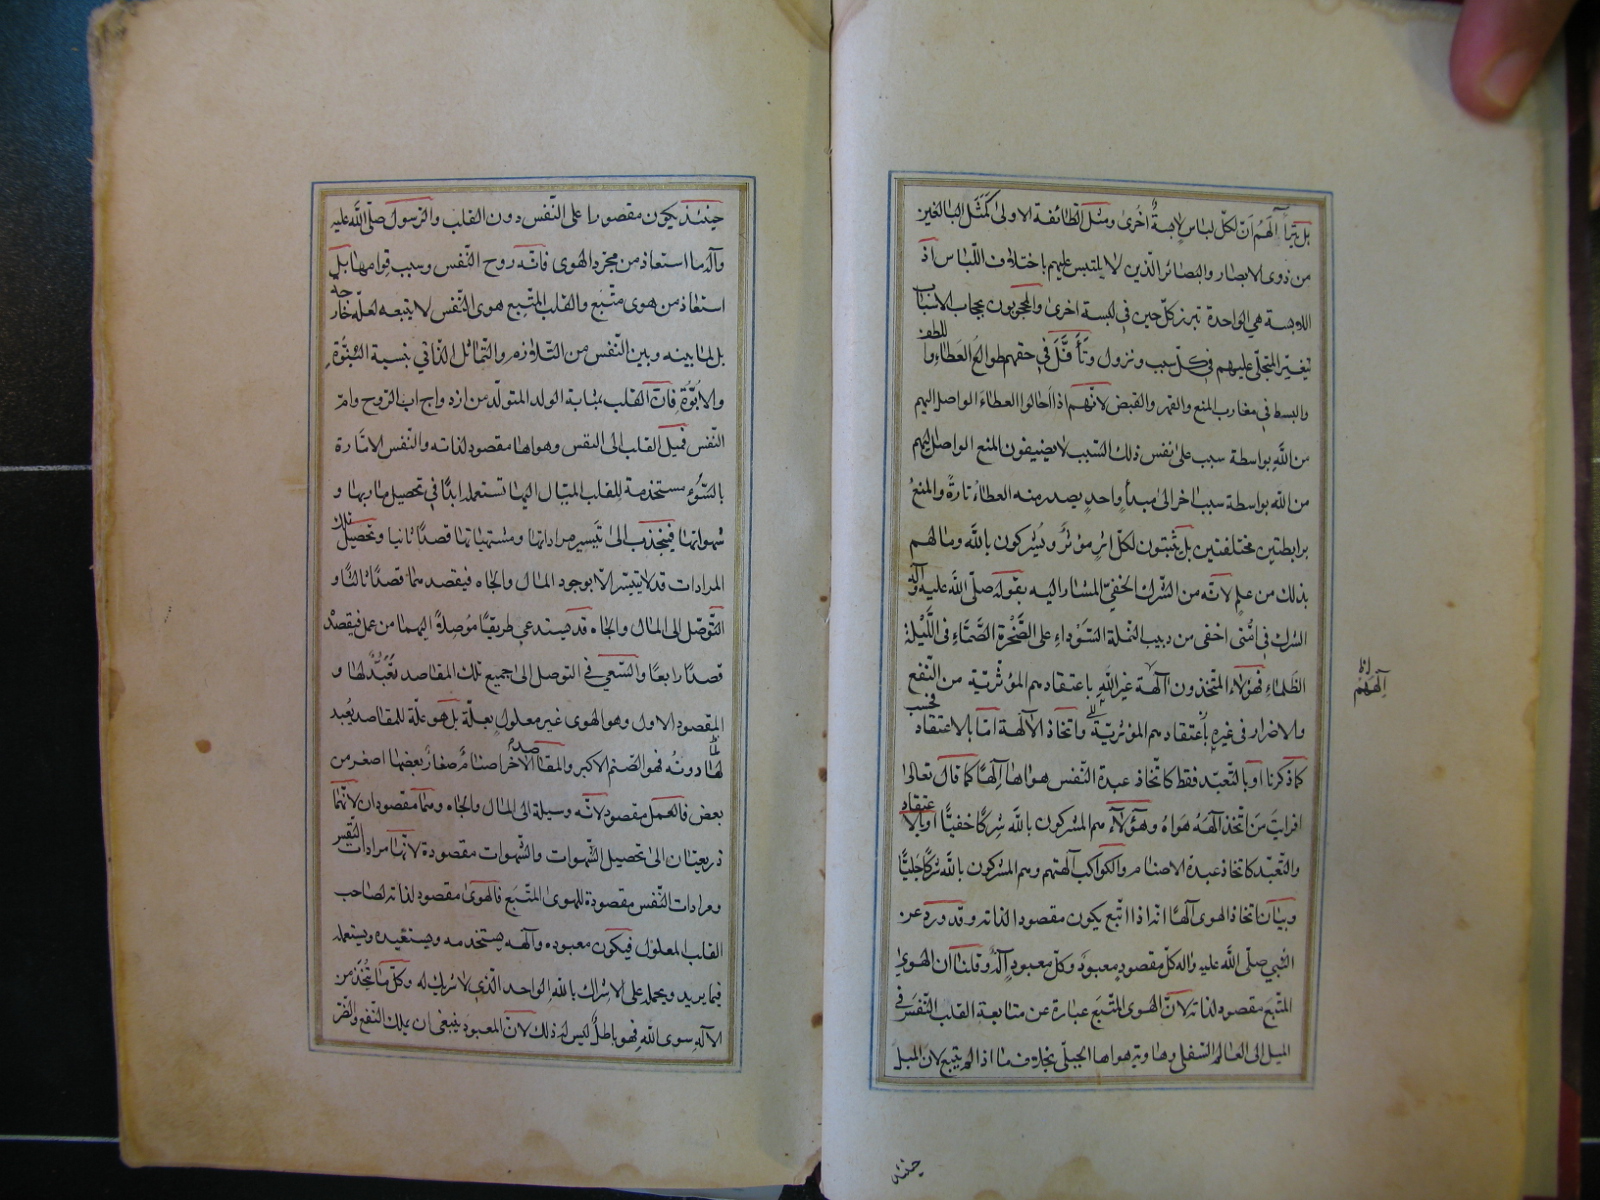 بل يتراآ لهم انّ لكلّ لباس لابسةٌ اخرى ومثل الطائفة الاولى كمَثَل البالغين
من ذوى الابصار والبصائر الّذين لا يلتبس عليهم باختلاف اللّباس اذ
اللابسة هى الواحدة تبرز كلّ حين فى لبسة اخرى والمحجوبون بحجاب الاسباب
يتغيّر المتجلّى عليهم فى كلّ سبب ونزول فى حقهم طوالع العطاء و اللطف
والبسط فى مغارب المنع والقهر والقبض لانّهم اذا احالوا العطاءَ الواصل اليهم
من الله بواسطة سبب على نفس ذلك السّبب لا يضيفون المنع الواصل اليهم
من الله بواسطة سبب اخر الى مبدأٍ واحدٍ يصدر منه العطاءُ تارةً والمنعُ
برابطتين مختلفتين بل يثبتون لكلّ اثرٍ مؤثرًا ويُشركون بالله وما لهم
بذلك من علمٍ لانّه من الشرك الخفىّ المشار اليه بقوله صلّى الله عليه وآله
الشرك فى امّتى اخفى من دبيب النملة السّوداءِ على الصَّخْرة الصَّمَّاءِ فى اللَّيْلة
الظَلماءِ فهؤلاء المتّخذون آلهةً غيرَ اللهِ باعتقادهم المؤثّريّة من النّفع
والاضرار فى غيره باعتقادهم المؤثريّة واتّخاذ الآلهة امّا بالاعتقاد فحسب
كما ذكرنا او بالتّعبّد فقط كاتّخاذ عبدة النّفس هواها آلهًا كما قال تعالى
افرايتَ مَن اتّخذ آلهَهُ هَوَاهُ وهؤلاء هم المشركون بالله شركًا خفيًّا او بالاعتقاد
والتّعبّد كاتخاذ عبدة الاصنام والكواكب آلهتهم وهم المشركون بالله شركًا جَليًّا
وبيان اتخاذ الهوى آلهًا انه اذا اتّبع يكون مقصودا لذاته وقد ورد عن
النّبي صلّى الله عليه واله كلّ مقصودٍ معبودٌ وكلّ معبودٍ آلهٌ وقلنا ان الهوىٰ
المتّبع مقصود لذاته لانّ الهوى المتّبَع عبارة عن متابعة القلب النّفسَ فى
الميل الى العالم السّفلى وهاويته هواها الجبلّى بخلاف ما اذا لم يتبع لان الميل
آلهَهُم
حينئذ
حينئذ يكون مقصورا على النّفس دون القلب والرّسول صلّى الله عليه
وآله ما استعاذ من مجرّد الهوى فانّه روح النّفس وسبب قوامها بل
استعاذ من هوى متّبع والقلب المتّبع هوى النّفس لا يتبعه لعلّة خارجه
بل لما بينه وبين النّفس من التلازم والتّماثل الذاتي بنسبة البُنُوّة
والابُوّة فانّ القلب بمثابة الولد المتولّد من ازدواج اب الرّوح وامّ
النّفس فميل القلب الى النفس وهواها مقصود لذاته والنّفس الامّارة
بالسّوْء مستخدمة للقلب الميّال اليها تستعمله ابدًا فى تحصيل مآربها و
شهواتها فينجذب الى تَيسيرِ مراداتها ومشتهياتها قصدًا ثانيا وتحصيل تلك
المرادات قد لا يتيسّر الّا بوجود المال والجاه فيقصدهما قصدًا ثالثًا و
التّوصّل الى المال والجاه قد يستدعى طريقًا مُوصلةً اليهما من عمل فيقصدُ
قصدًا رابعًا والسّعي فى التوصل الى جميع تلك المقاصد تَعَبُّدٌ لها و
المقصود الاول وهو الهوى غير معلول بعلّة بل هو علّة للمقاصد يُعبد
لها دونهُ فهو الصّنم الاكبر والمقاصد الاخر اصنامٌ صغارٌ بعضها اصغر من
بعض فالعمل مقصود لانّه وسيلة الى المال والجاه وهما مقصودان لانّهما
ذريعتان الى تحصيل الشّهوات والشّهوات مقصودة لانّها مرادات النّفس
ومرادات النّفس مقصودة للهوى المتّبَع فالهوىٰ مقصود لذاته لصاحب
القلب المعلول فيكون معبوده وآلهه يستخدمه ويستعبده ويستعمله
فيما يريد ويحمله على الاشراك بالله الواحد الّذي لا شريك له وكلّ ما يُتّخذ من
الآله سوى الله فهو باطلٌ ليس له ذلك لانّ المعبود ينبغى ان يملك النّفع والضّر